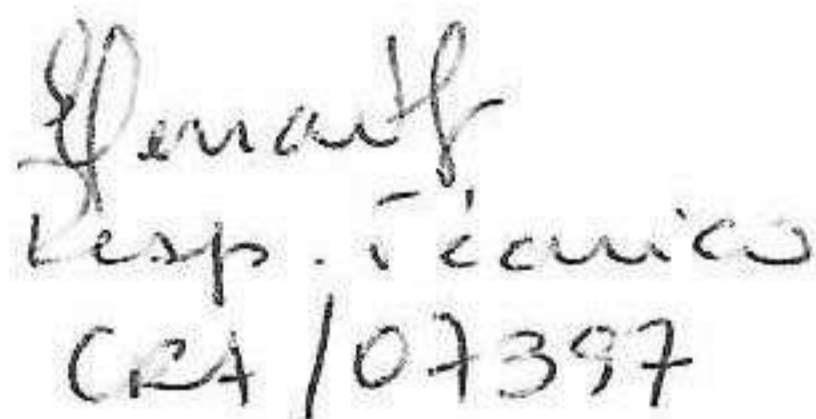 Resp. Técnico
CRA/07397